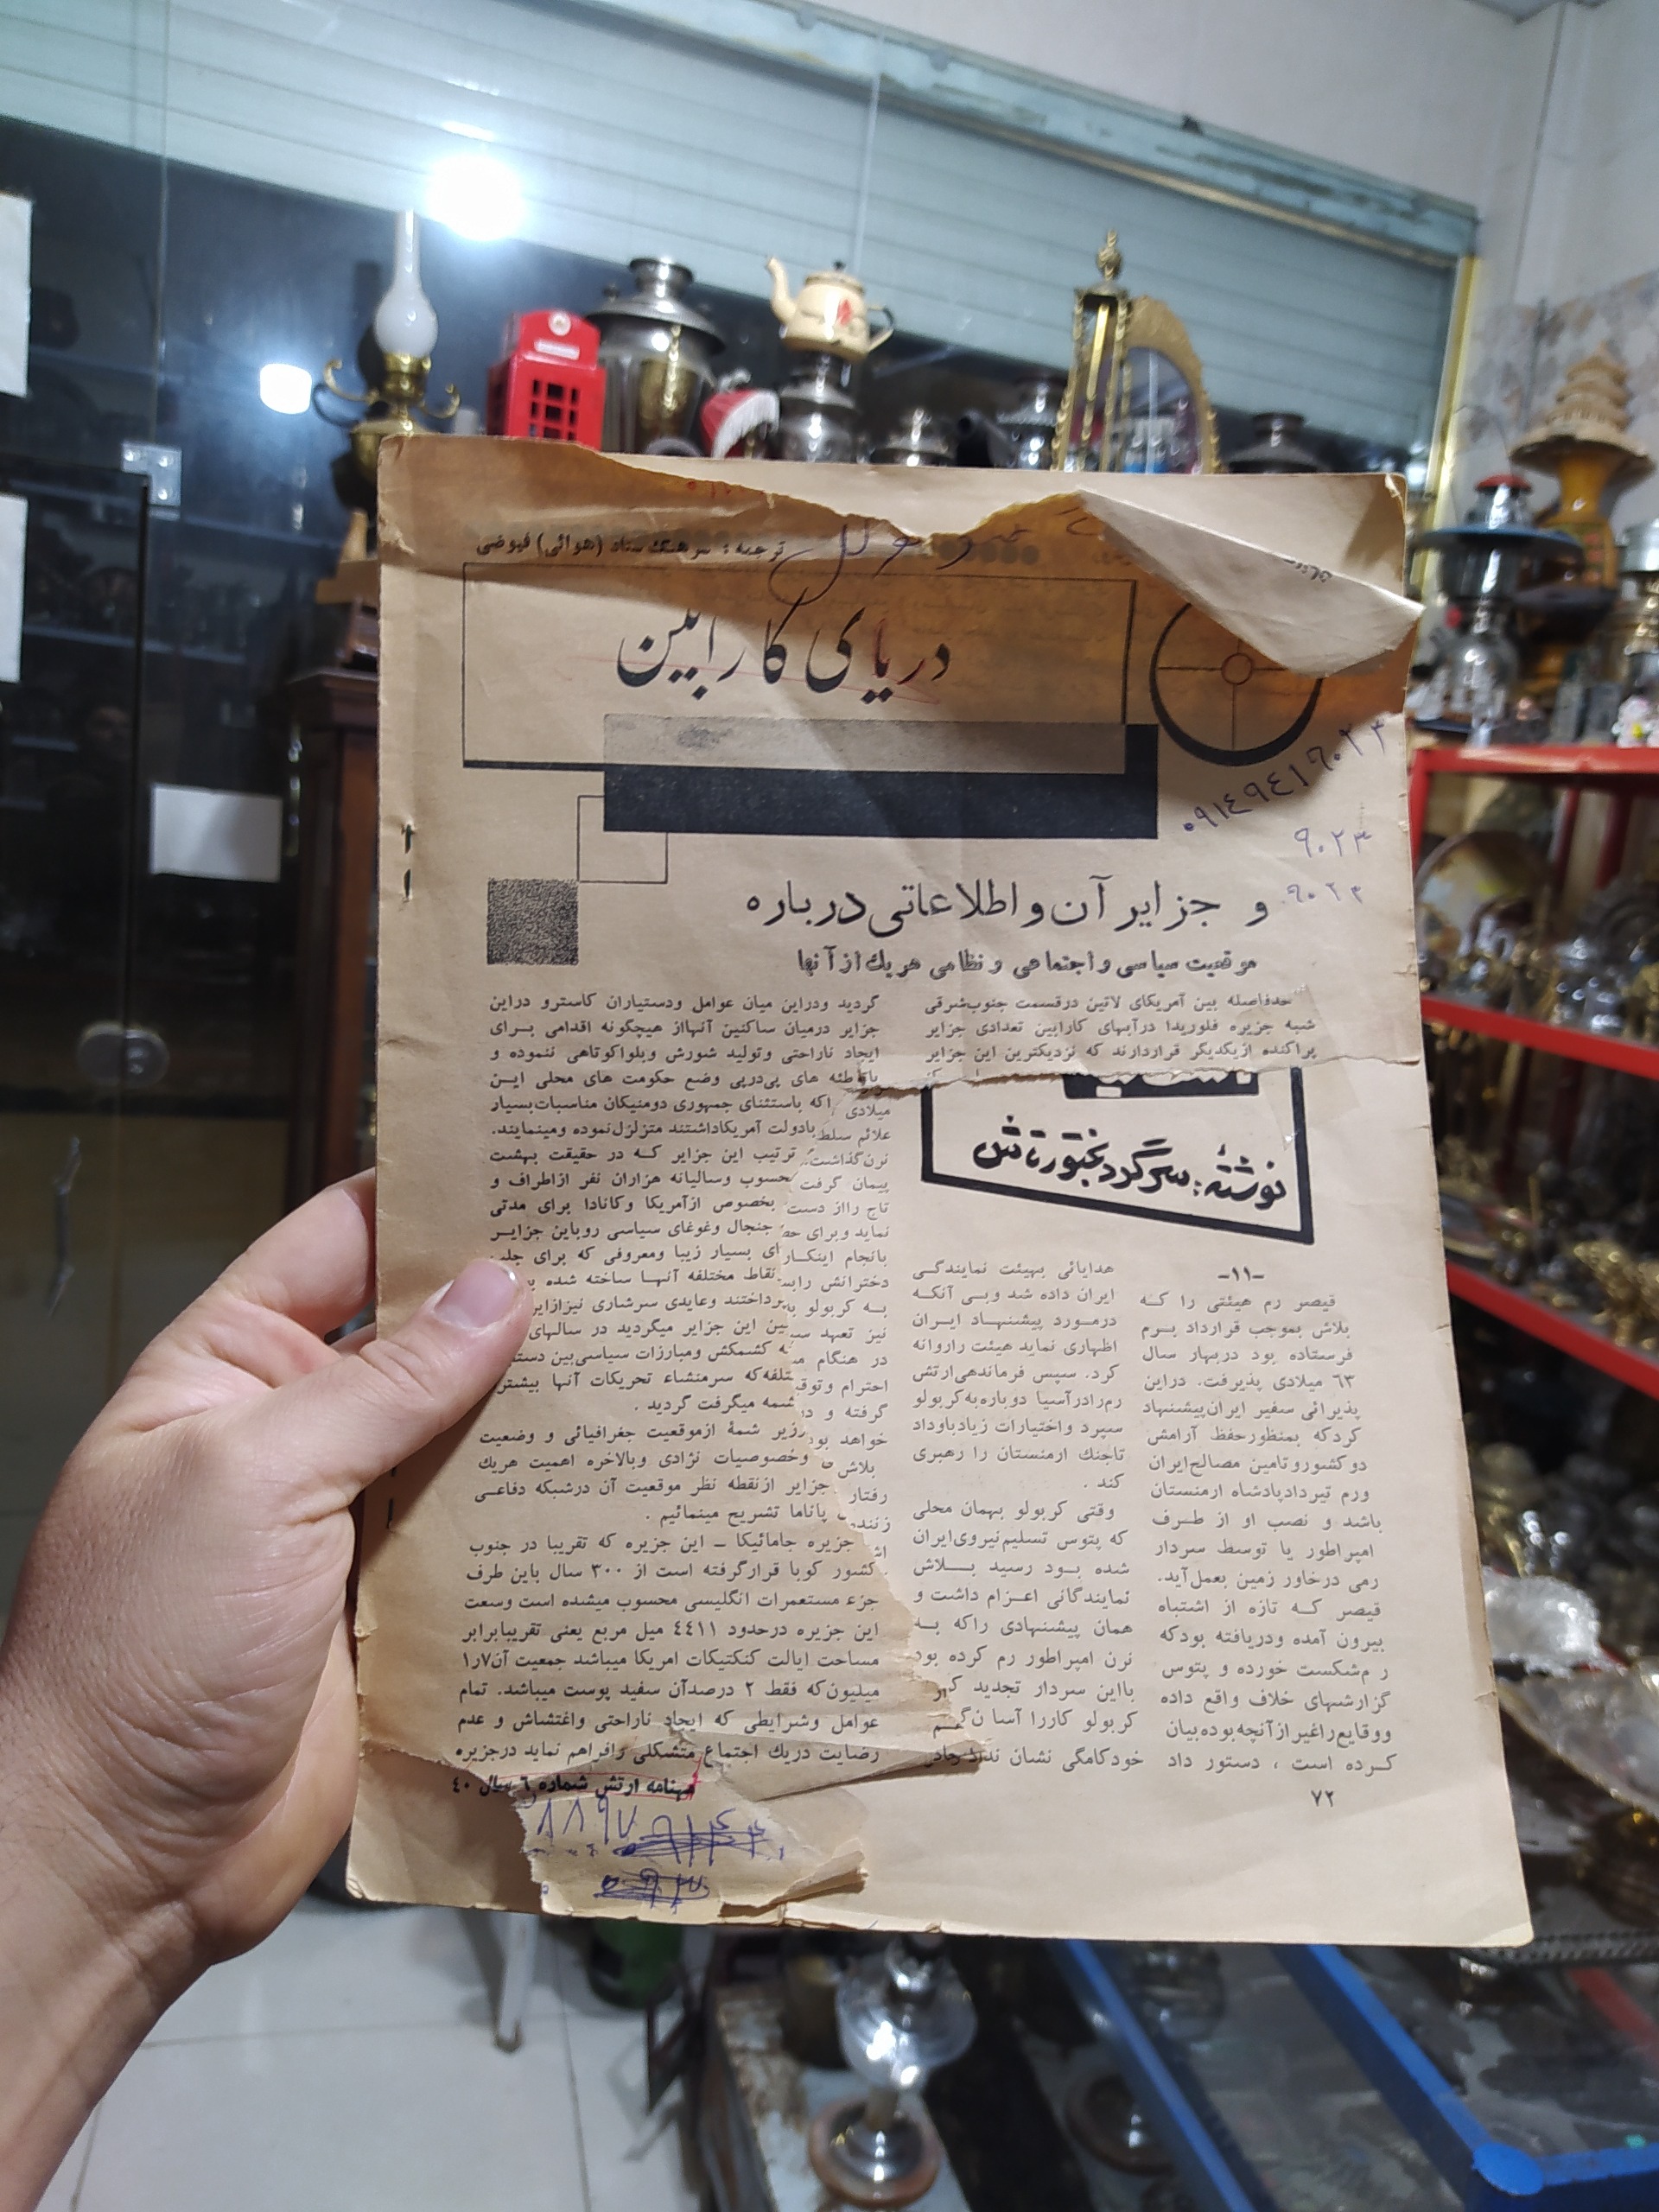 ترجمه : سرهنگ ستاد (هوائی) فیوضی
دریای کارایبین
۰۹۱٤۹٤۱۹۰۲۳
۹۰۲۳
۹۰۲۳
و جزایر آن و اطلاعاتی درباره
موقعیت سیاسی و اجتماعی و نظامی هریك از آنها
حدفاصله بین آمریکای لاتین درقسمت جنوب‌شرقی
شبه جزیره فلوریدا درآبهای کارابین تعدادی جزایر
پراکنده ازیکدیگر قراردارند که نزدیکترین این جزایر
نوشتهٔ: سرگرد بختورتاش
-۱۱-
قیصر رم هیئتی را کـه
بلاش بموجب قرارداد بـرم
فرستاده بود دربهار سال
٦۳ میلادی پذیرفت. دراین
پذیرائی سفیر ایران‌پیشنهاد
کردکه بمنظورحفظ آرامش
دوکشوروتامین مصالح‌ایران
ورم تیردادپادشاه ارمنستان
باشد و نصب او از طـرف
امپراطور یا توسط سردار
رمی درخاور زمین بعمل‌آید.
قیصر کـه تازه از اشتباه
بیرون آمده ودریافته بودکه
رم‌شکست خورده و پتوس
گزارشهای خلاف واقع داده
ووقایع‌راغیرازآنچه‌بوده‌بیان
کـرده است ، دستور داد
هدایائی بهیئت نمایندگـی
ایران داده شد وبـی آنکـه
درمـورد پیشنهـاد ایـران
اظهاری نماید هیئت راروانه
کرد. سپس فرماندهی‌ارتش
رم‌رادرآسیا دوباره‌به‌کربولو
سپرد واختیارات زیادباوداد
تاجنك ارمنستان را رهبری
کند .
وقتی کربولو بهمان محلی
که پتوس تسلیم‌نیروی‌ایران
شده بـود رسید بــلاش
نمایندگانی اعـزام داشت و
همان پیشنهادی راکه بـه
نرن امپراطور رم کرده بود
بااین سردار تجدید
کربولو کاررا آسان
خودکامگی نشان
میلادی
علائم
نرن‌گذاشت
پیمان گرفت
تاج رااز دست
نماید وبرای
بانجام اینکـار
دخترانش
بـه کربولو
نیز تعهد
در هنگام
احترام
گرفته و
خواهد بود
بلاش
رفتار
گردید ودراین میان عوامل ودستیاران کاسترو دراین
جزایر درمیان ساکنین آنهااز هیچگونه اقدامی بـرای
ایجاد ناراحتی وتولید شورش وبلواکوتاهی ننموده و
های پی‌درپی وضع حکومت های محلی ایـن
اکه باستثنای جمهوری دومنیکان مناسبات‌بسیار
بادولت آمریکاداشتند متزلزل‌نموده ومینمایند.
ترتیب این جزایر کـه در حقیقت بهشت
محسوب وسالیانه هزاران نفر ازاطراف و
بخصوص ازآمریکا وکانادا برای مدتی
جنجال وغوغای سیاسی روباین جزایـر
ای بسیار زیبا ومعروفی که برای
نقاط مختلفه آنهـا ساخته شده
پرداختند وعایدی سرشاری
این جزایر میگردید در سالهای
کشمکش ومبارزات سیاسی‌بین
که سرمنشاء تحریکات آنها بیشتر
میگرفت گردید .
شمهٔ ازموقعیت جغرافیائی و وضعیت
وخصوصیات نژادی وبالاخره اهمیت هریك
جزایر ازنقطه نظر موقعیت آن درشبکه دفاعـی
پاناما تشریح مینمائیم .
جزیره جامائیکا ــ این جزیره که تقریبا در جنوب
کشور کوبا قرارگرفته است از ۳۰۰ سال باین طرف
جزء مستعمرات انگلیسی محسوب میشده است وسعت
این جزیره درحدود ٤٤۱۱ میل مربع یعنی تقریبابرابر
مساحت ایالت کنکتیکات امریکا میباشد جمعیت آن۱٫۷
میلیون‌که فقط ۲ درصدآن سفید پوست میباشد. تمام
عوامل وشرایطی که ایجاد ناراحتی واغتشاش و عدم
رضایت دریك اجتماع متشکلی رافراهم نماید درجزیره
۷۲
مهنامه ارتش شماره ٦ سال ٤۰
۸۸۹۷